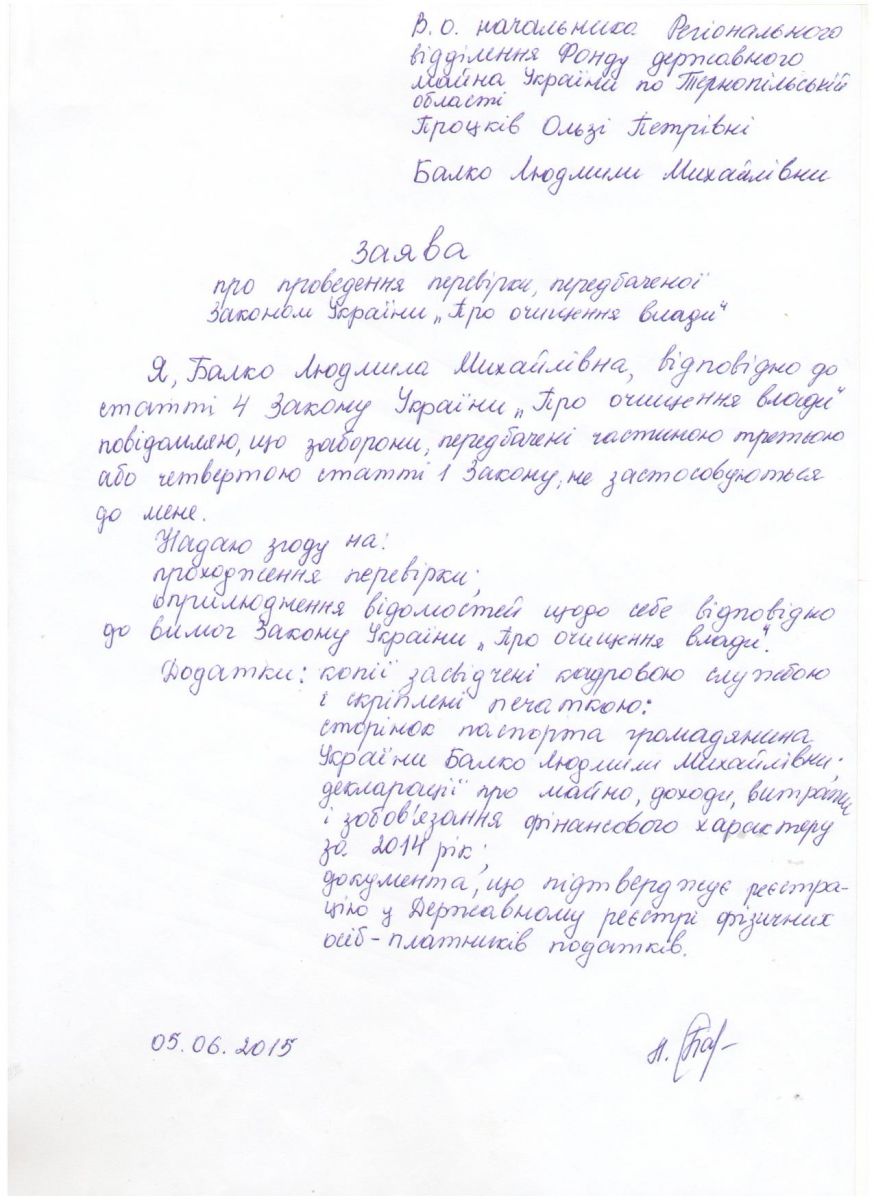 В.о. начальника Регіонального
відділення Фонду державного
майна України по Тернопільській
області
Процків Ользі Петрівні
Балко Людмили Михайлівни
заява
про проведення перевірки, передбаченої
Законом України „Про очищення влади“
Я, Балко Людмила Михайлівна, відповідно до
статті 4 Закону України „Про очищення влади“
повідомляю, що заборони, передбачені частиною третьою
або четвертою статті 1 Закону, не застосовуються
до мене.
Надаю згоду на:
проходження перевірки;
оприлюдження відомостей щодо себе відповідно
до вимог Закону України „Про очищення влади“.
Додатки: копії засвідчені кадровою службою
і скріплені печаткою:
сторінок паспорта громадянина
України Балко Людмили Михайлівни;
декларації про майно, доходи, витрати
і зобов'язання фінансового характеру
за 2014 рік;
документа, що підтверджує реєстра-
цію у Державному реєстрі фізичних
осіб-платників податків.
05.06.2015